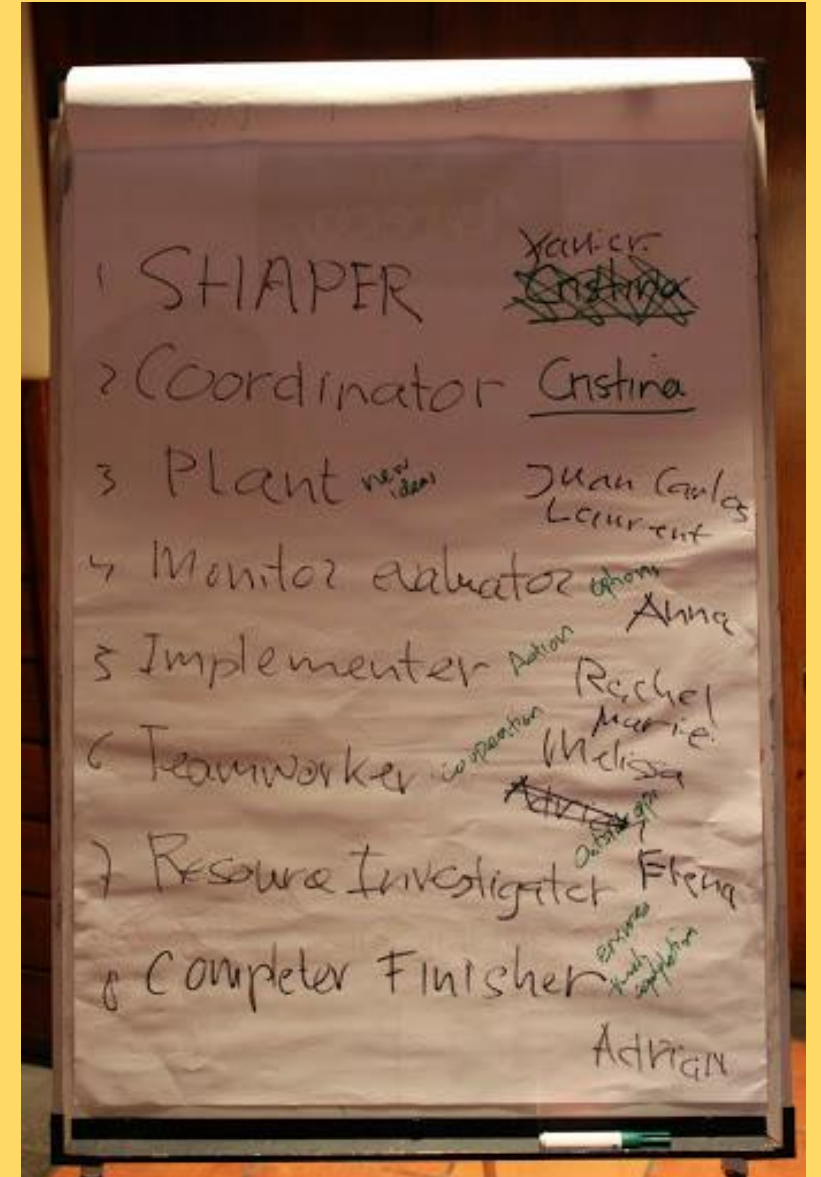 Xavier
1 SHAPER Cristina
2 Coordinator Cristina
3 Plant new ideas Juan Carlos
Laurent
4 Monitor evaluator options
Anna
5 Implementer Action
Rachel
Marie
6 Teamworker cooperation Melissa
Adrian
7 Resource Investigator Elena
8 Completer Finisher ensures
completion
Adrian